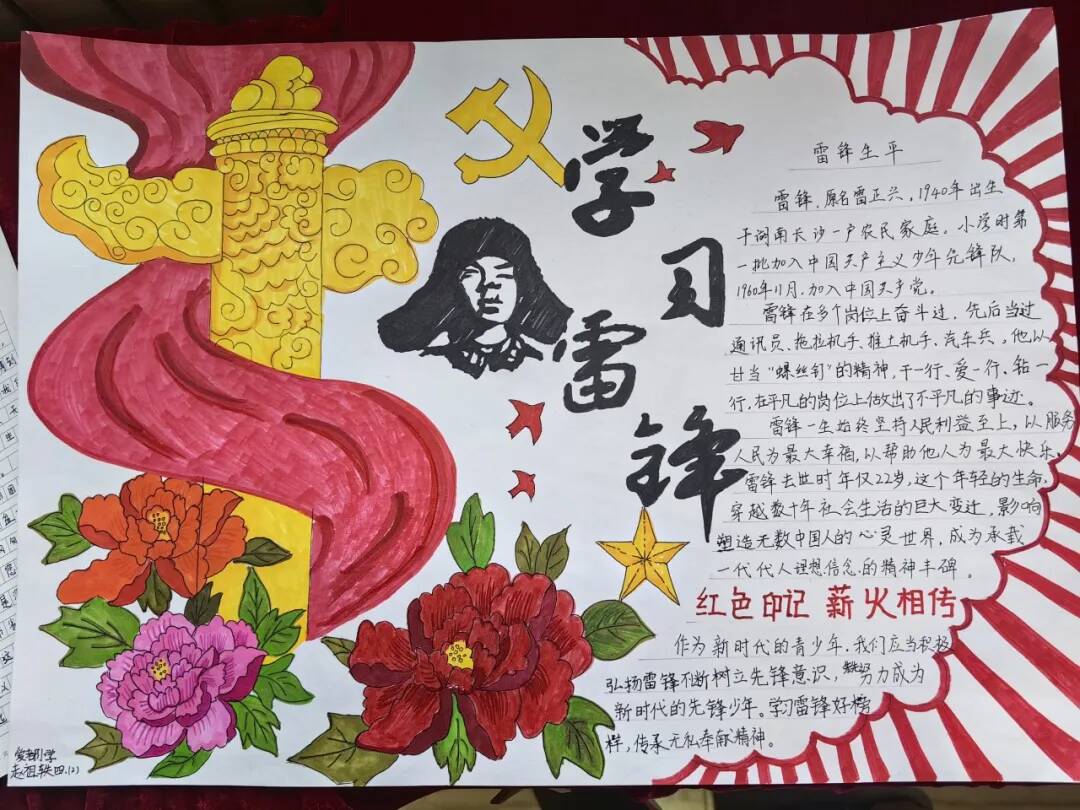 学习
雷锋
雷锋生平
雷锋,原名雷正兴,1940年出生
于湖南长沙一户农民家庭。小学时第
一批加入中国共产主义少年先锋队,
1960年11月,加入中国共产党。
雷锋在多个岗位上奋斗过,先后当过
通讯员、拖拉机手、推土机手、汽车兵,他以
甘当“螺丝钉”的精神,干一行、爱一行、钻一
行,在平凡的岗位上做出了不平凡的事迹。
雷锋一生始终坚持人民利益至上,以服务
人民为最大幸福,以帮助他人为最大快乐。
雷锋去世时年仅22岁,这个年轻的生命,
穿越数十年社会生活的巨大变迁,影响
塑造无数中国人的心灵世界,成为承载
一代代人理想信念的精神丰碑。
红色印记 薪火相传
作为新时代的青少年,我们应当积极
弘扬雷锋不断树立先锋意识,努力成为
新时代的先锋少年。学习雷锋好榜
样,传承无私奉献精神。
小学
赵祖轶 四.(2)